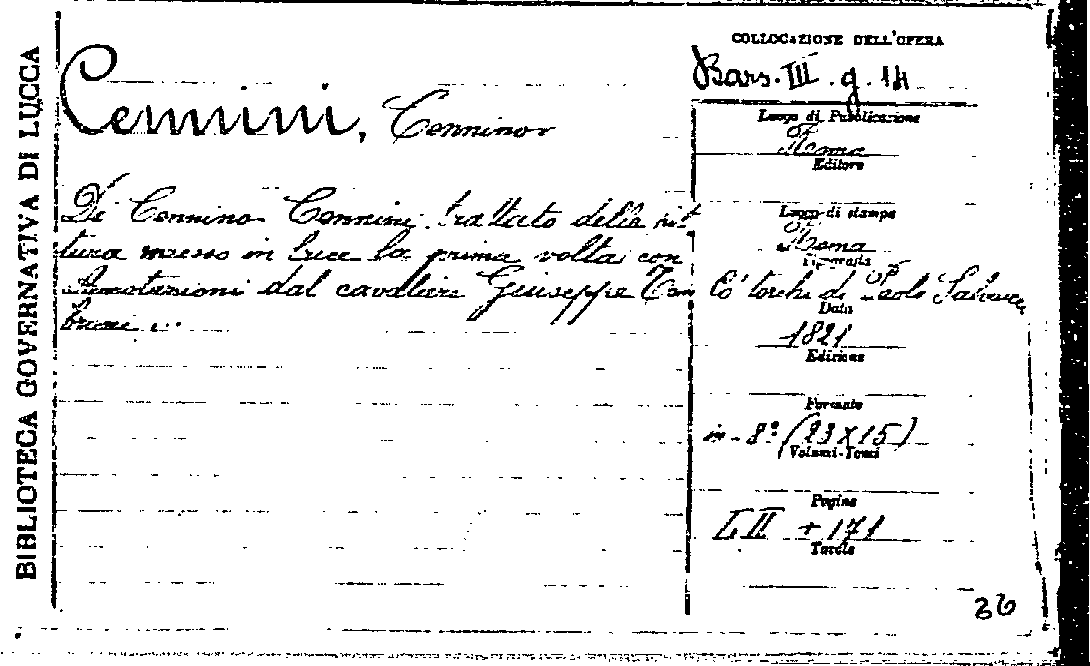 BIBLIOTECA GOVERNATIVA DI LUCCA
Cennini, Cennino
Di Cennino Cennini trattato della pit
tura messo in luce la prima volta con
annotazioni dal cavaliere Giuseppe Tam
broni ...
COLLOCAZIONE DELL'OPERA
Bars. III. g. 14
Luogo di Pubblicazione
Roma
Editore
Luogo di stampa
Roma
Tipografia
Co' torchi di Paolo Salviucci
Data
1821
Edizione
Formato
in-8° (23x15)
Volumi-Tomi
Pagine
LII + 171
Tavole
36